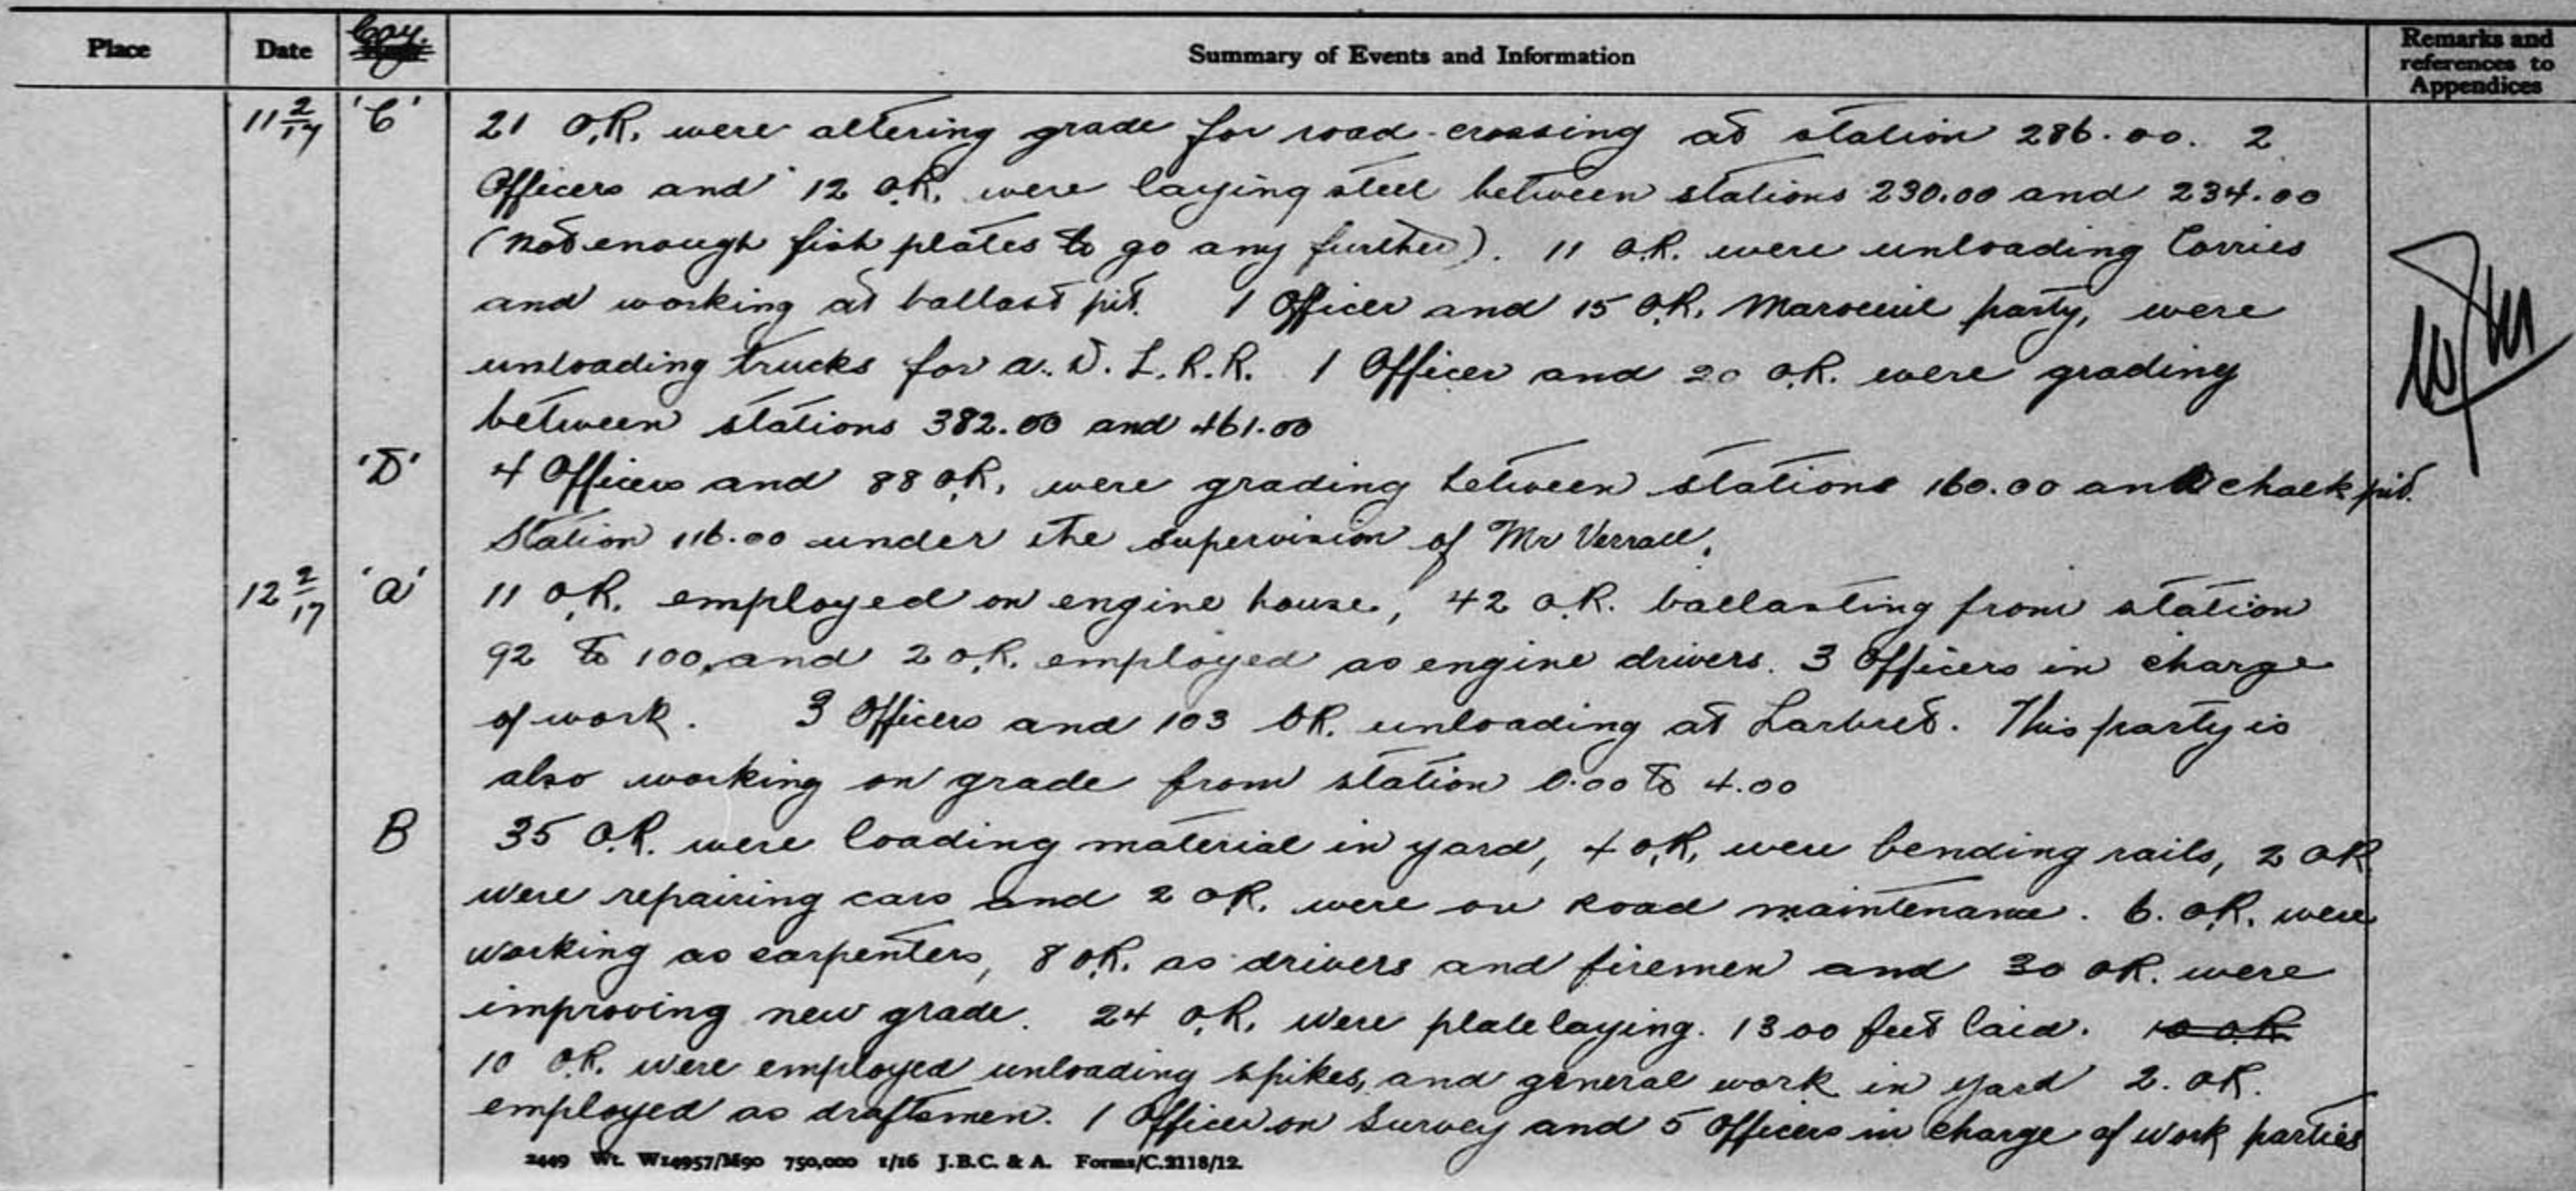 Place Date Coy. Summary of Events and Information Remarks and references to Appendices
11 2/17 'C' 21 O.R. were altering grade for road-crossing at station 286.00. 2
Officers and 12 O.R. were laying steel between stations 230.00 and 234.00
(not enough fish plates to go any further). 11 O.R. were unloading lorries
and working at ballast pit. 1 Officer and 15 O.R. Maroeuil party, were
unloading trucks for A.D.L.R.R. 1 Officer and 20 O.R. were grading
between stations 382.00 and 461.00
'D' 4 Officers and 88 O.R. were grading between stations 160.00 and chalk pit.
Station 116.00 under the supervision of Mr Verrall.
12 2/17 'A' 11 O.R. employed on engine house, 42 O.R. ballasting from station
92 to 100, and 2 O.R. employed as engine drivers. 3 Officers in charge
of work. 3 Officers and 103 OR. unloading at Larbret. This party is
also working on grade from station 0.00 to 4.00
B 35 O.R. were loading material in yard, 4 O.R. were bending rails, 2 OR
were repairing cars and 2 OR. were on road maintenance. 6. O.R. were
working as carpenters, 8 O.R. as drivers and firemen and 30 OR. were
improving new grade. 24 O.R. were platelaying. 1300 feet laid. 10 O.R.
10 O.R. were employed unloading spikes, and general work in yard 2. OR.
employed as draftsmen. 1 Officer on Survey and 5 Officers in charge of work parties
2449 Wt. W14957/M90 750,000 1/16 J.B.C. & A. Forms/C.2118/12.